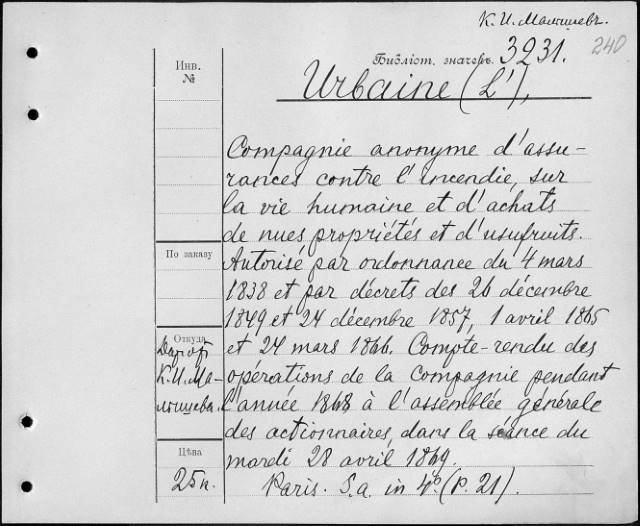 К. И. Малышевъ.
240
Библіот. значекъ 3231.
Инв.
№
Urbaine (L'),
Compagnie anonyme d'assu-
rances contre l'incendie, sur
la vie humaine et d'achats
de nues propriétés et d'usufruits.
Autorisé par ordonnance du 4 mars
1838 et par décrets des 26 décembre
1849 et 24 décembre 1857, 1 avril 1865
et 24 mars 1866. Compte-rendu des
opérations de la compagnie pendant
l'année 1868 à l'assemblée générale
des actionnaires, dans la séance du
mardi 28 avril 1869.
Paris. S.a. in 4º (P. 21).
По заказу
Откуда
Даръ отъ
К. И. Ма-
лышева.
Цѣна
25к.